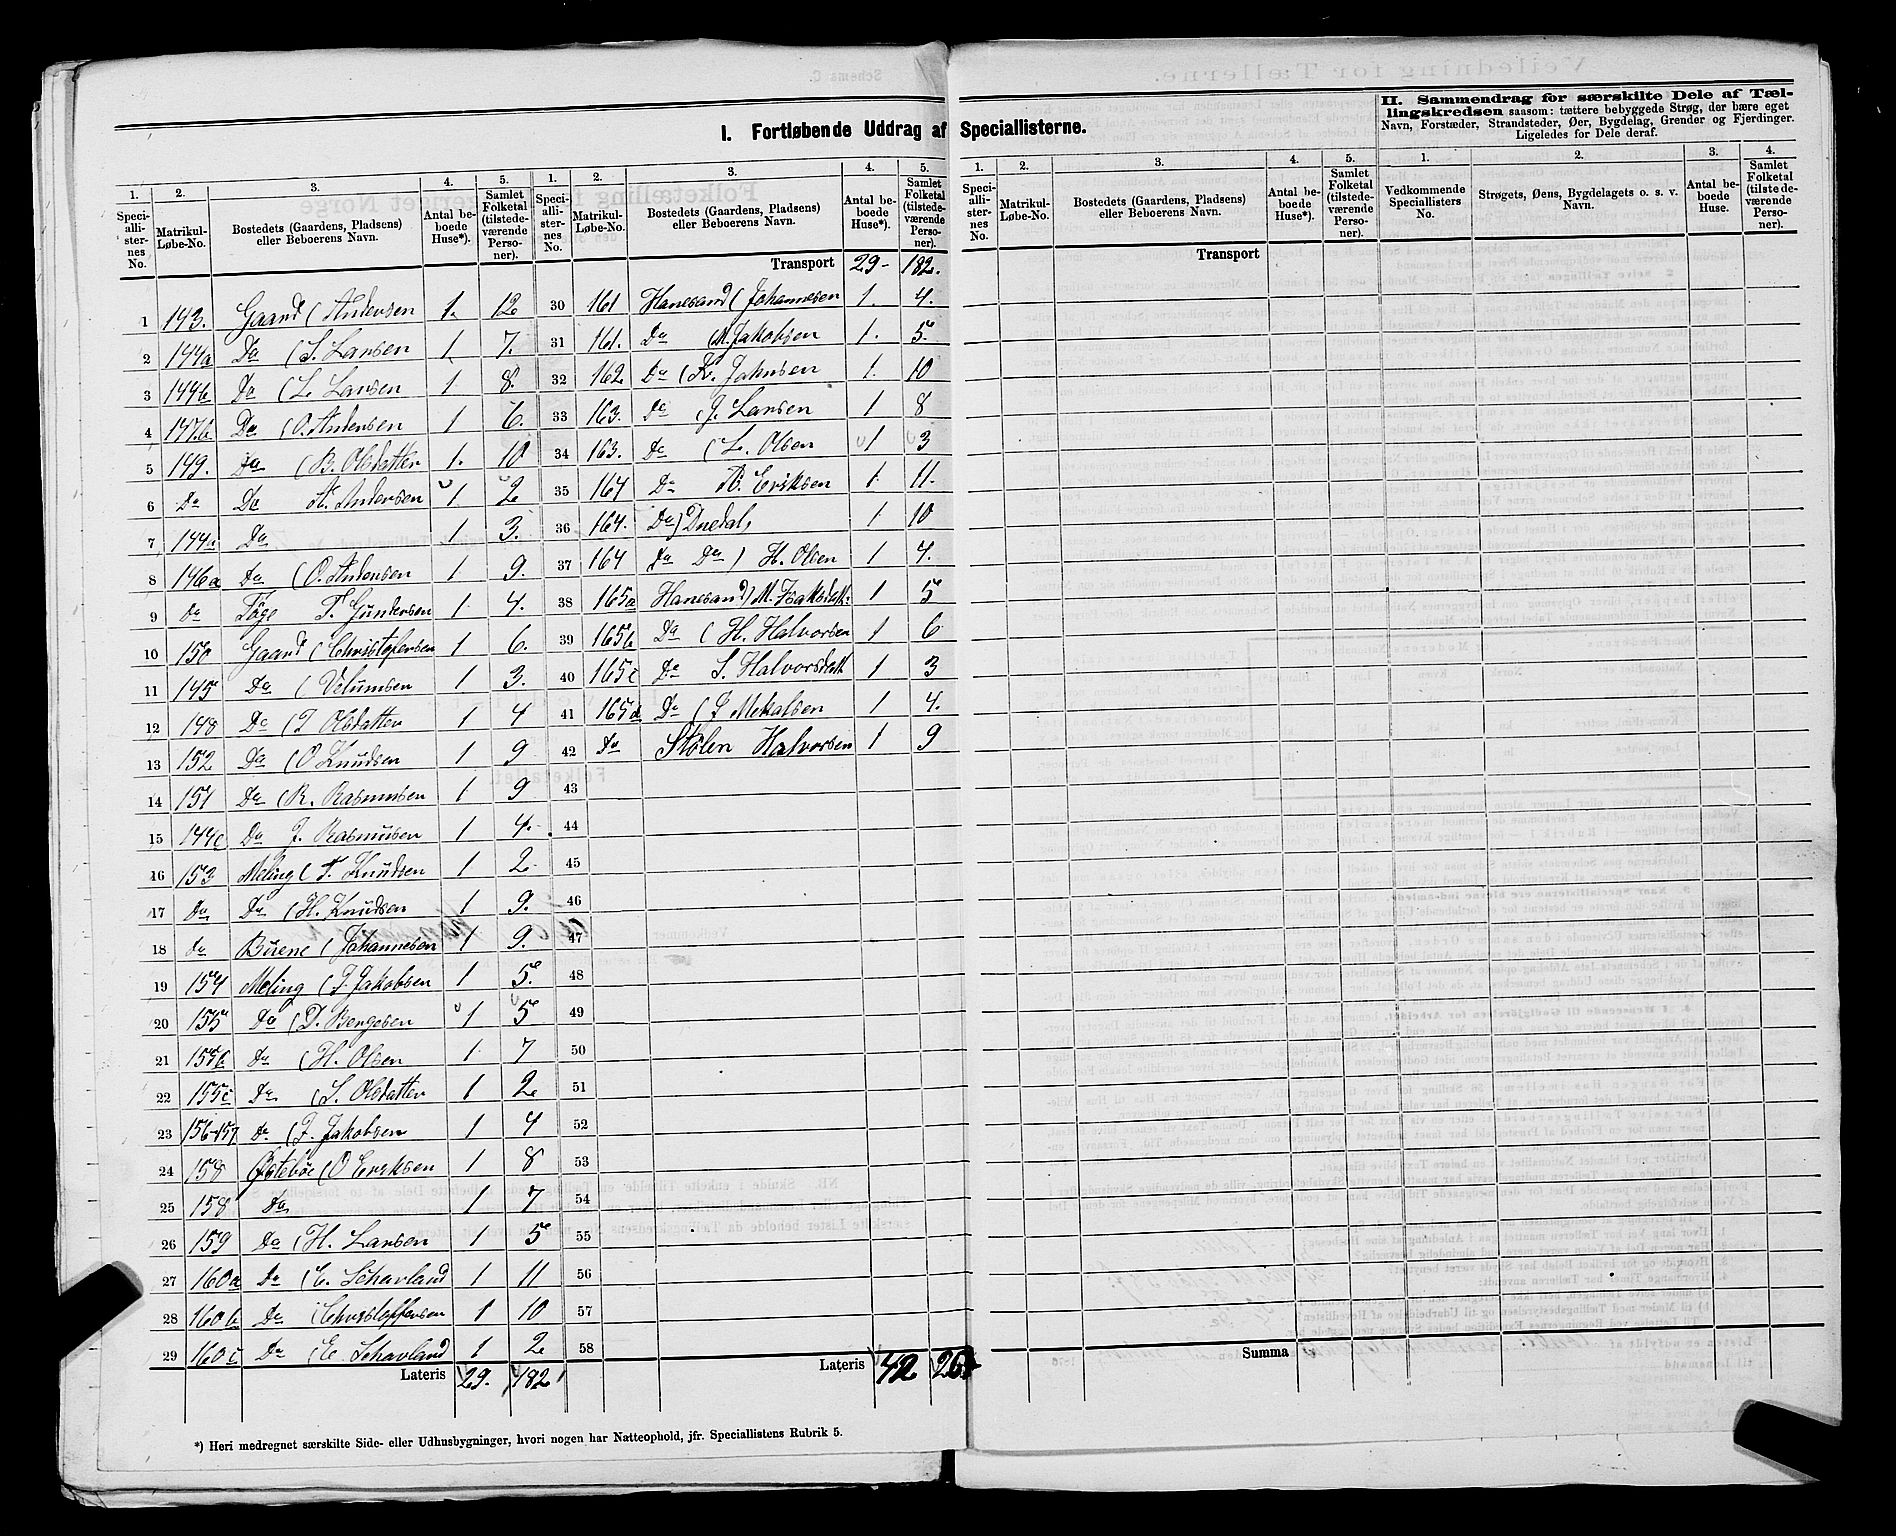 I. Fortløbende Uddrag af Speciallisterne.
II. Sammendrag for særskilte Dele af Tællingskredsen saasom: tættere bebyggede Strøg, der bære eget Navn, Forstæder, Strandsteder, Øer, Bygdelag, Grender og Fjerdinger. Ligeledes for Dele deraf.
1. 2. 3. 4. 5.
Speciallisternes No. Matrikul-Løbe-No. Bostedets (Gaardens, Pladsens) eller Beboerens Navn. Antal beboede Huse*). Samlet Folketal (tilstedeværende Personer).
1 143. Gaard (Andersen 1. 12
2 144a Do (S. Larsen 1 7.
3 144b Do (L. Larsen 1 8
4 147b Do (O. Andersen 1 6.
5 149. Do (B. Olsdatter 1. 10
6 Do Do A. Andersen 1. 2
7 144 Do 1 3.
8 146a Do (O. Andersen 1 9.
9 Do T. Gundersen 1 4.
10 150 Gaard (Christofersen 1 6.
11 145 Do (Velumsen 1 3.
12 148 Do (T Olsdatter 1 4
13 152 Do (O Knudsen 1 9
14 151 Do (R. Rasmusen 1 9
15 144c Do J. Rasmusen 1 4.
16 153 Meling (T. Knudsen 1 2
17 Do Do (H. Knudsen 1 9.
18 Do (Johannesen 1 9.
19 154 Meling (J. Jakobsen 1 5.
20 155 Do 1 5
21 155b Do (H. Olsen 1 7
22 155c Do (S. Olsdatter 1 2
23 156-157 Do (J. Jakobsen 1 4
24 158 Østebøe (O Eriksen 1 8
25 158 Do 1 7
26 159 Do (H. Larsen 1 5
27 160a Do (E. Schavland 1 11
28 160b Do (Christoffersen 1 10
29 160c Do (E. Schavland 1 2
Lateris 29. 182
1. 2. 3. 4. 5.
Speciallisternes No. Matrikul-Løbe-No. Bostedets (Gaardens, Pladsens) eller Beboerens Navn. Antal beboede Huse*). Samlet Folketal (tilstedeværende Personer).
Transport 29- 182.
30 161 Hanesand (Johannesen 1. 4.
31 161. Do (M. Jakobsen 1. 5.
32 162 Do 1. 10
33 163. Do (J. Larsen 1 8
34 163. Do (L. Olsen 1 3
35 164 Do B. Eriksen 1 11.
36 164. Do) 1 10
37 164 Do Do) H. Olsen 1 4.
38 165a Hanesand) M. 1 5
39 165b Do (H. Halvorsen 1 6
40 165c Do S. Halvorsdatt 1 3
41 165d Do 1 4.
42 Do Stølen Halvorsen 1 9
43
44
45
46
47
48
49
50
51
52
53
54
55
56
57
58
Lateris 42 264
*) Heri medregnet særskilte Side- eller Udhusbygninger, hvori nogen har Natteophold, jfr. Speciallistens Rubrik 5.
1. 2. 3. 4. 5.
Speciallisternes No. Matrikul-Løbe-No. Bostedets (Gaardens, Pladsens) eller Beboerens Navn. Antal beboede Huse*). Samlet Folketal (tilstedeværende Personer).
Transport
Summa
1. 2. 3. 4.
Vedkommende Speciallisters No. Strøgets, Øens, Bygdelagets o. s. v. Navn. Antal beboede Huse. Samlet Folketal (tilstedeværende Personer).